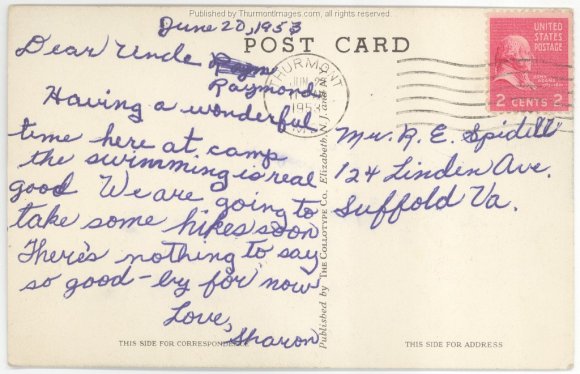 Published by ThurmontImages.com, all rights reserved.
June 20, 1953
POST CARD
Dear Uncle
Raymond
Having a wonderful
time here at camp
the swimming is real
good We are going to
take some hikes soon
There's nothing to say
so good-by for now
Love,
Sharon
THIS SIDE FOR CORRESPONDENCE
Published by THE COLLOTYPE Co., Elizabeth, N. J. and N.
THURMONT
JUN
1953
MD.
UNITED
STATES
POSTAGE
JOHN ADAMS
2 CENTS 2
Mr. R. E. Spidell
124 Linden Ave.
Suffold Va.
THIS SIDE FOR ADDRESS